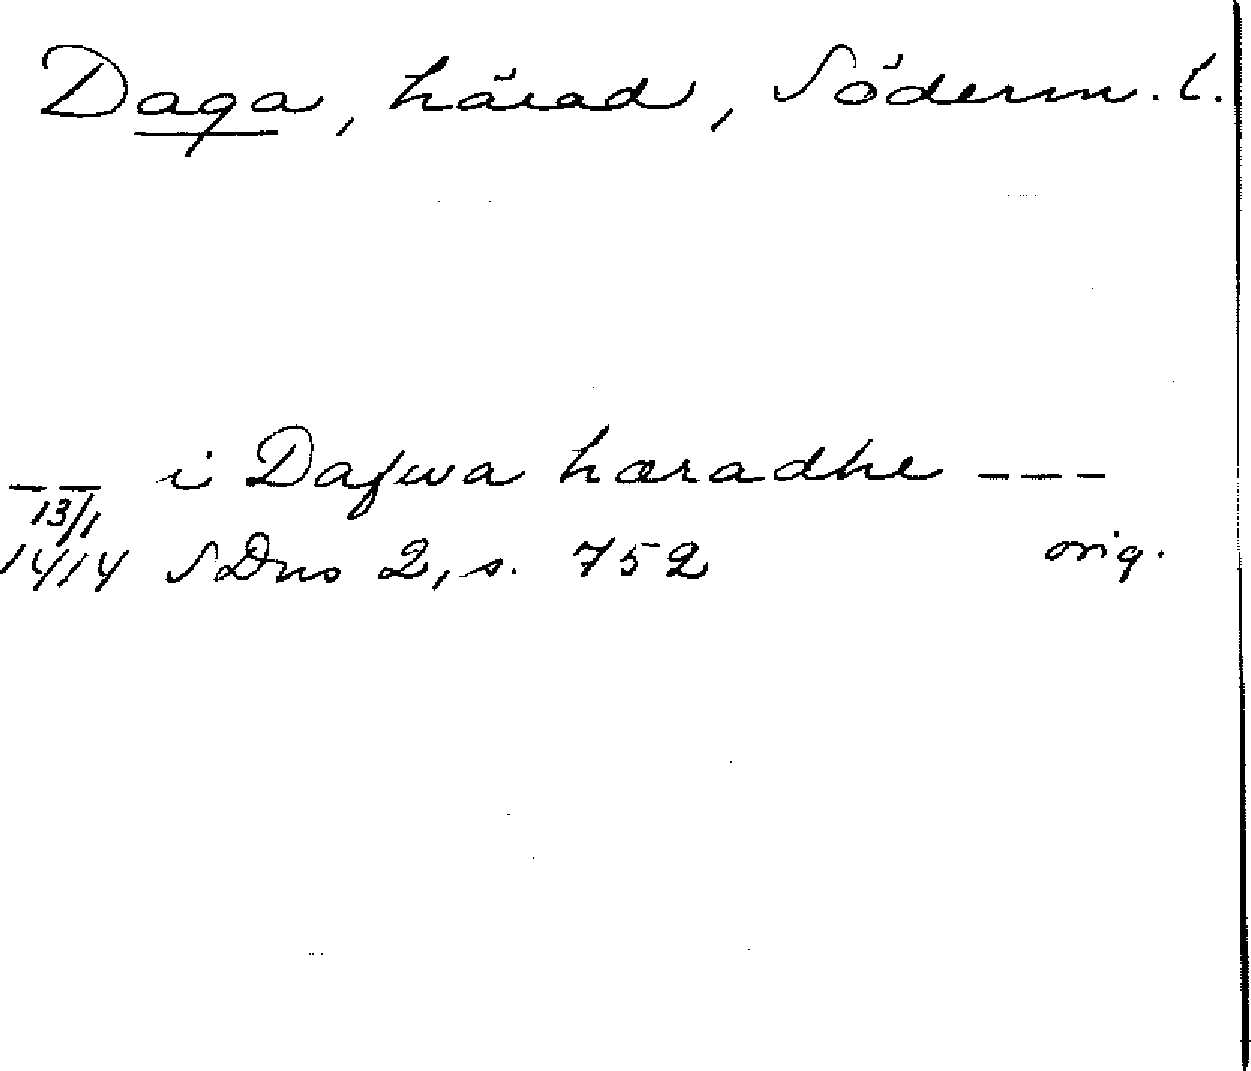 Daga, härad, Söderm. l.
-- i Dafwa hæradhe ---
13/1
1414 SDns 2, s. 752 orig.